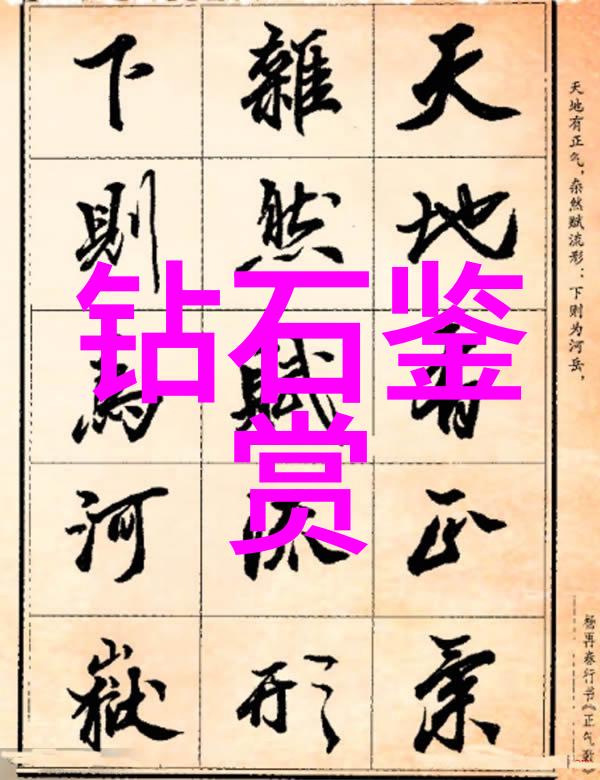 天地有正氣
雜然賦流形
下則為河嶽
天地有正气，杂然赋流形：下则为河岳，
杨再春行书《正气歌》
钻石鉴
赏